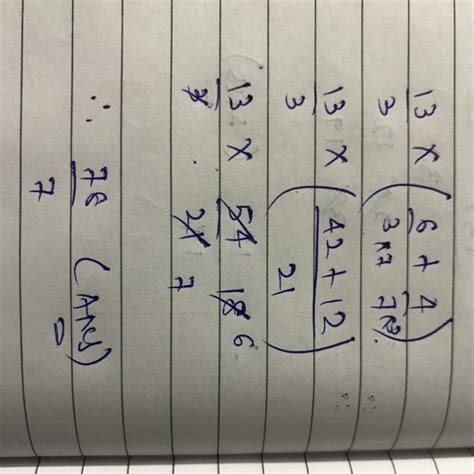 13/3 × (6/3×7 + 4/7×3)
13/3 × (42 + 12/21)
13/3 × 54/21 18 6 7
∴ 76/7 (Ans)